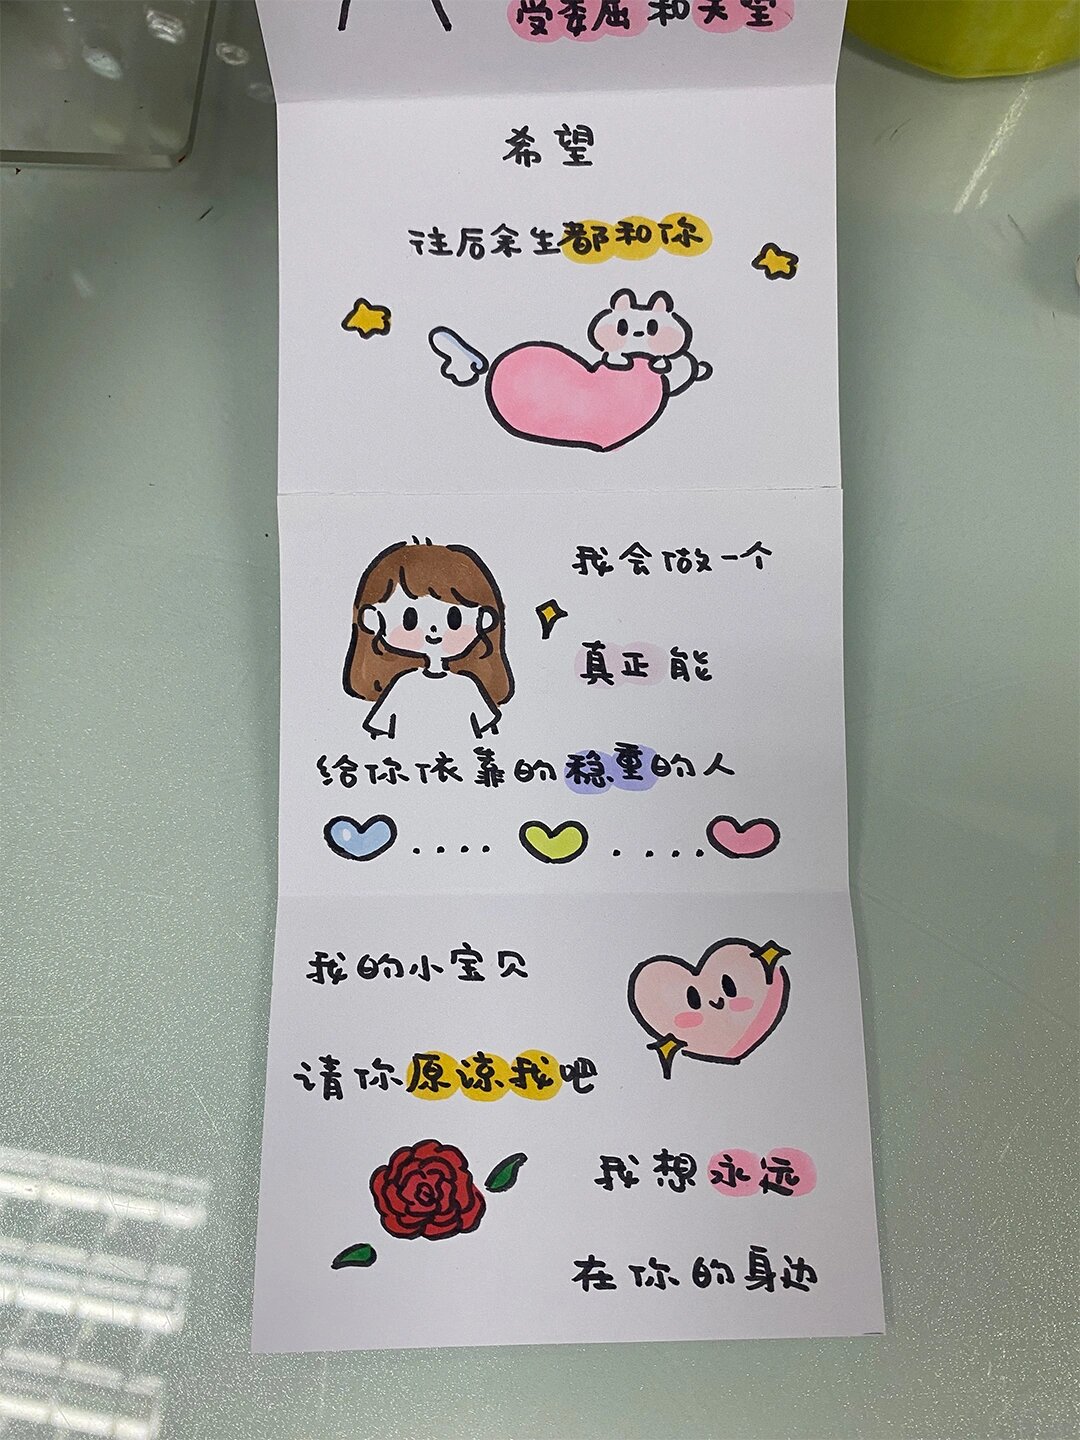 受委屈和失望
希望
往后余生都和你
我会做一个
真正能
给你依靠的稳重的人
我的小宝贝
请你原谅我吧
我想永远
在你的身边